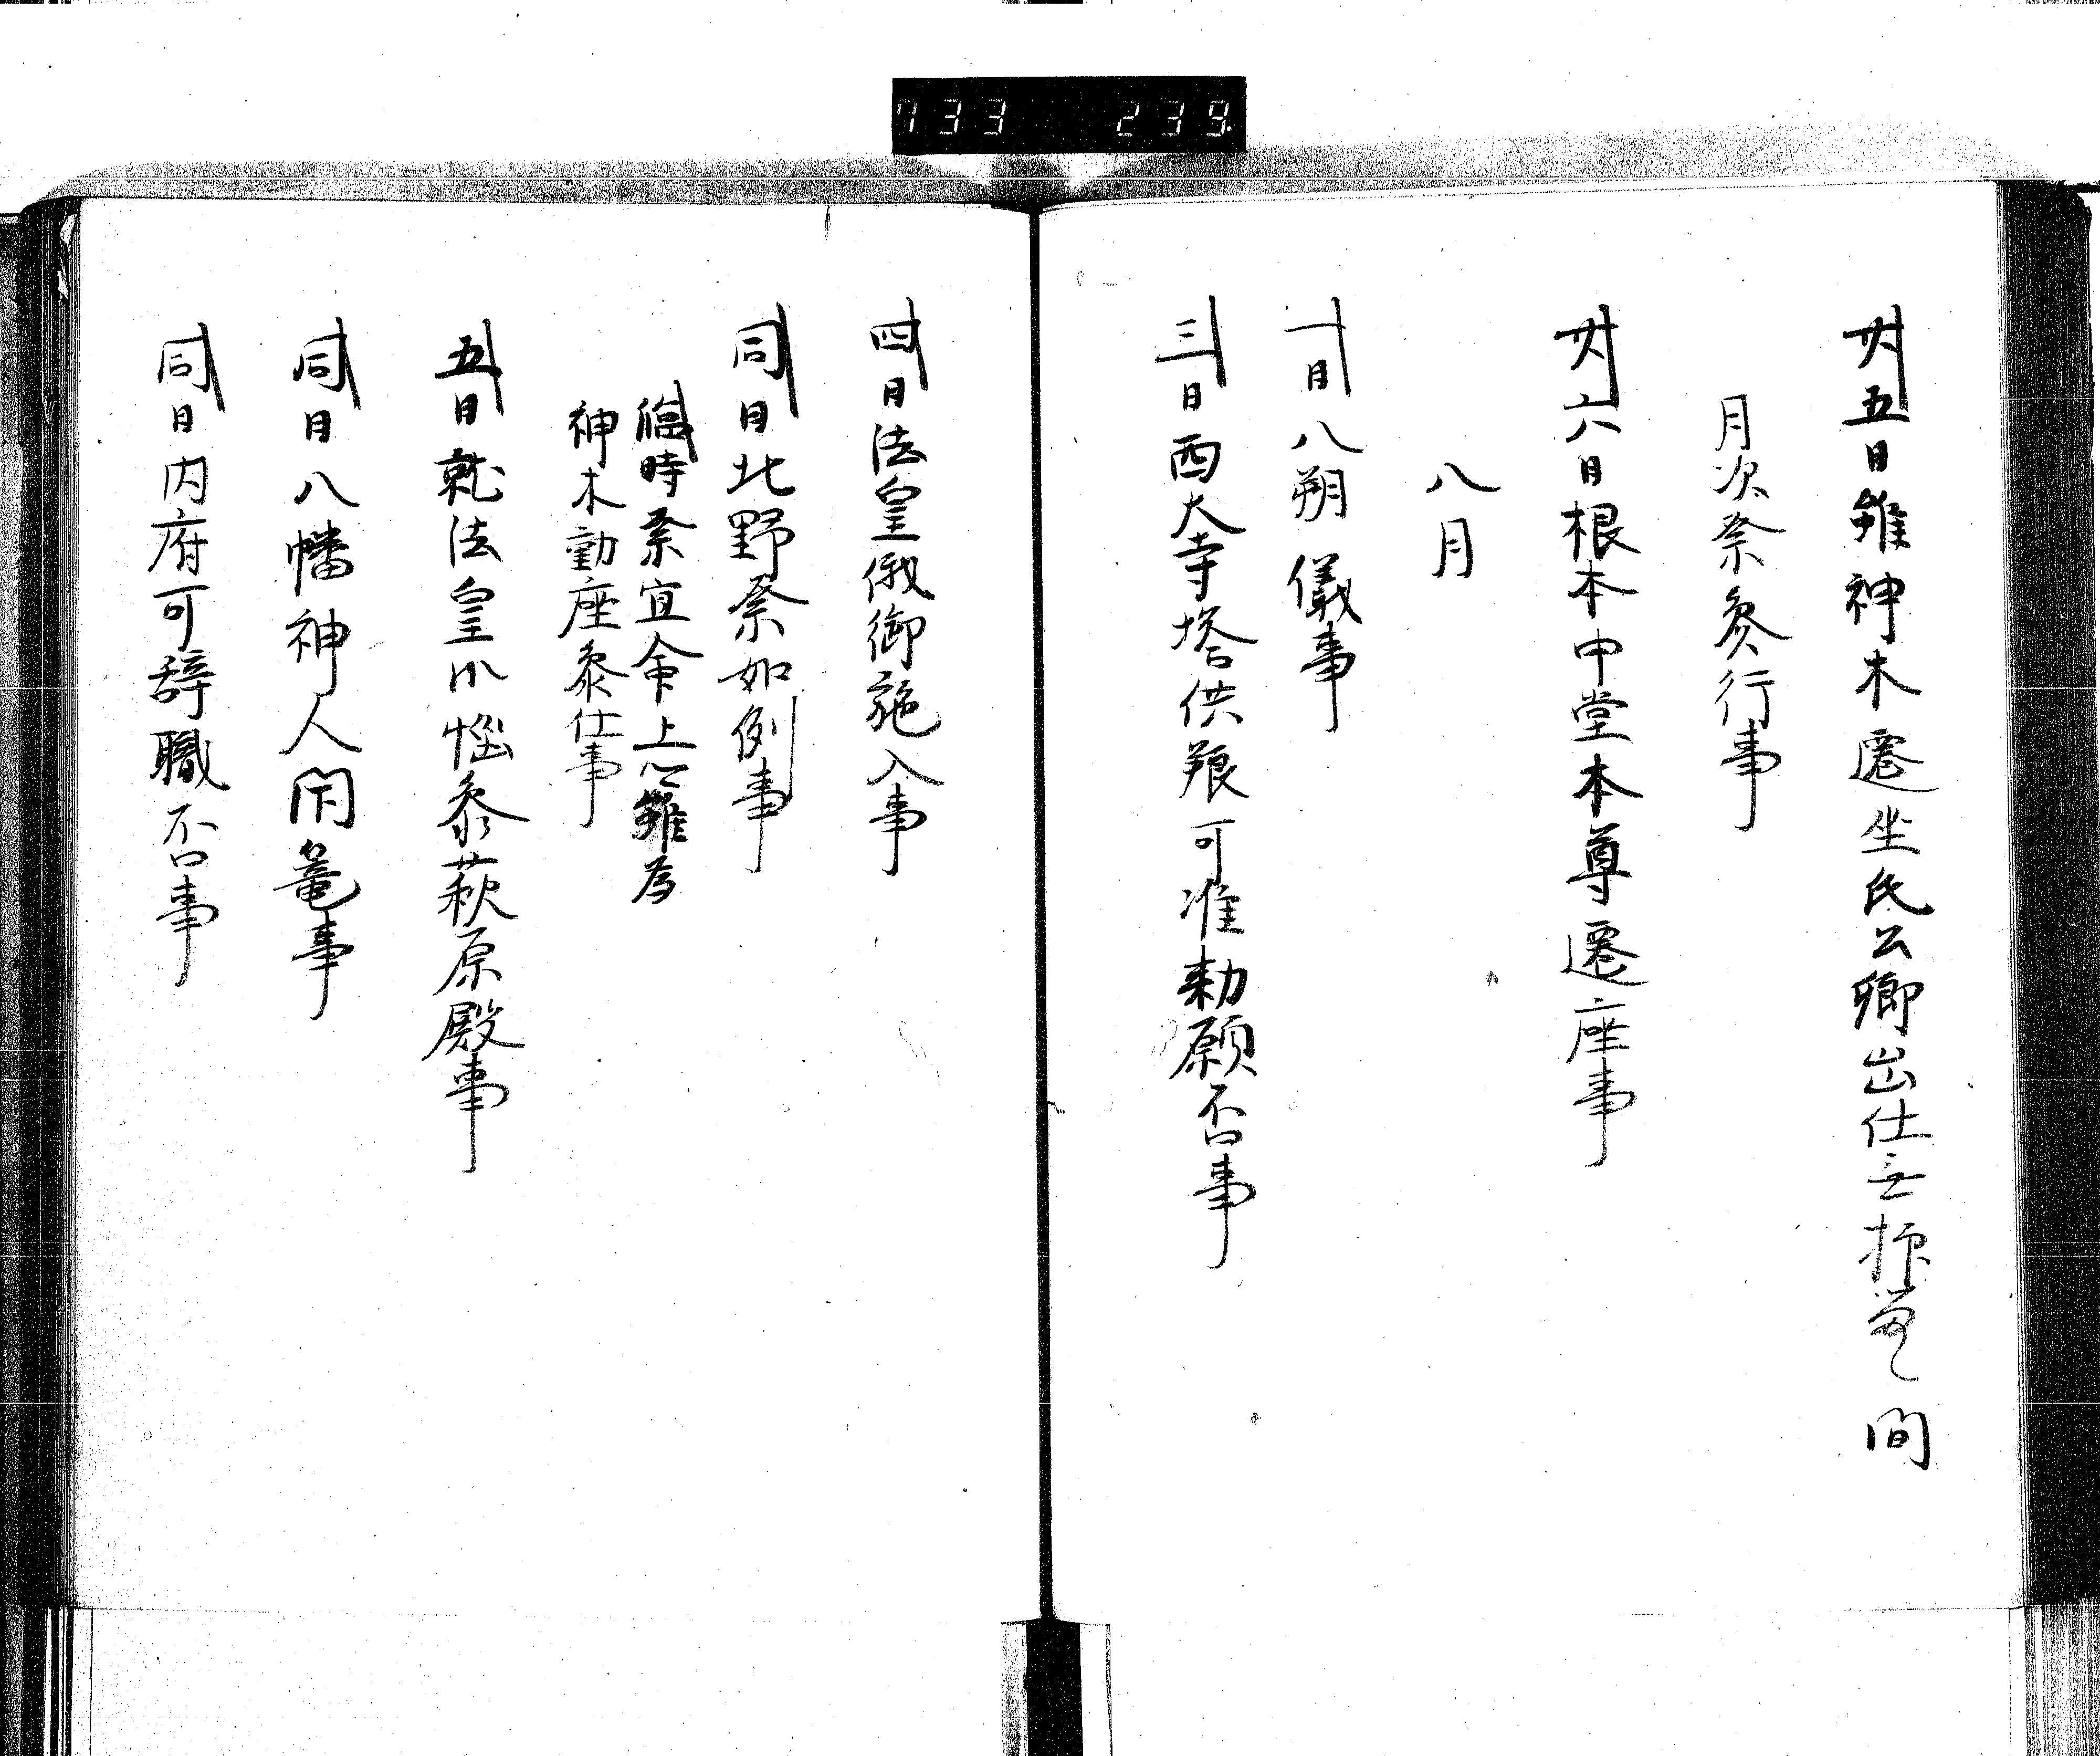 733 239
廿五日雖神木遷坐氏公卿出仕無拠㝡之間
月次祭参行事
廿六日根本中堂本尊遷座事
八月
一日八朔儀事
三日西大寺塔供養可准勅願否事
四日法皇俄御施入事
同日北野祭如例事
臨時祭宣命上以下雖為
神木動座参仕事
五日就法皇御悩参萩原殿事
同日八幡神人閇篭事
同日内府可辞職否事